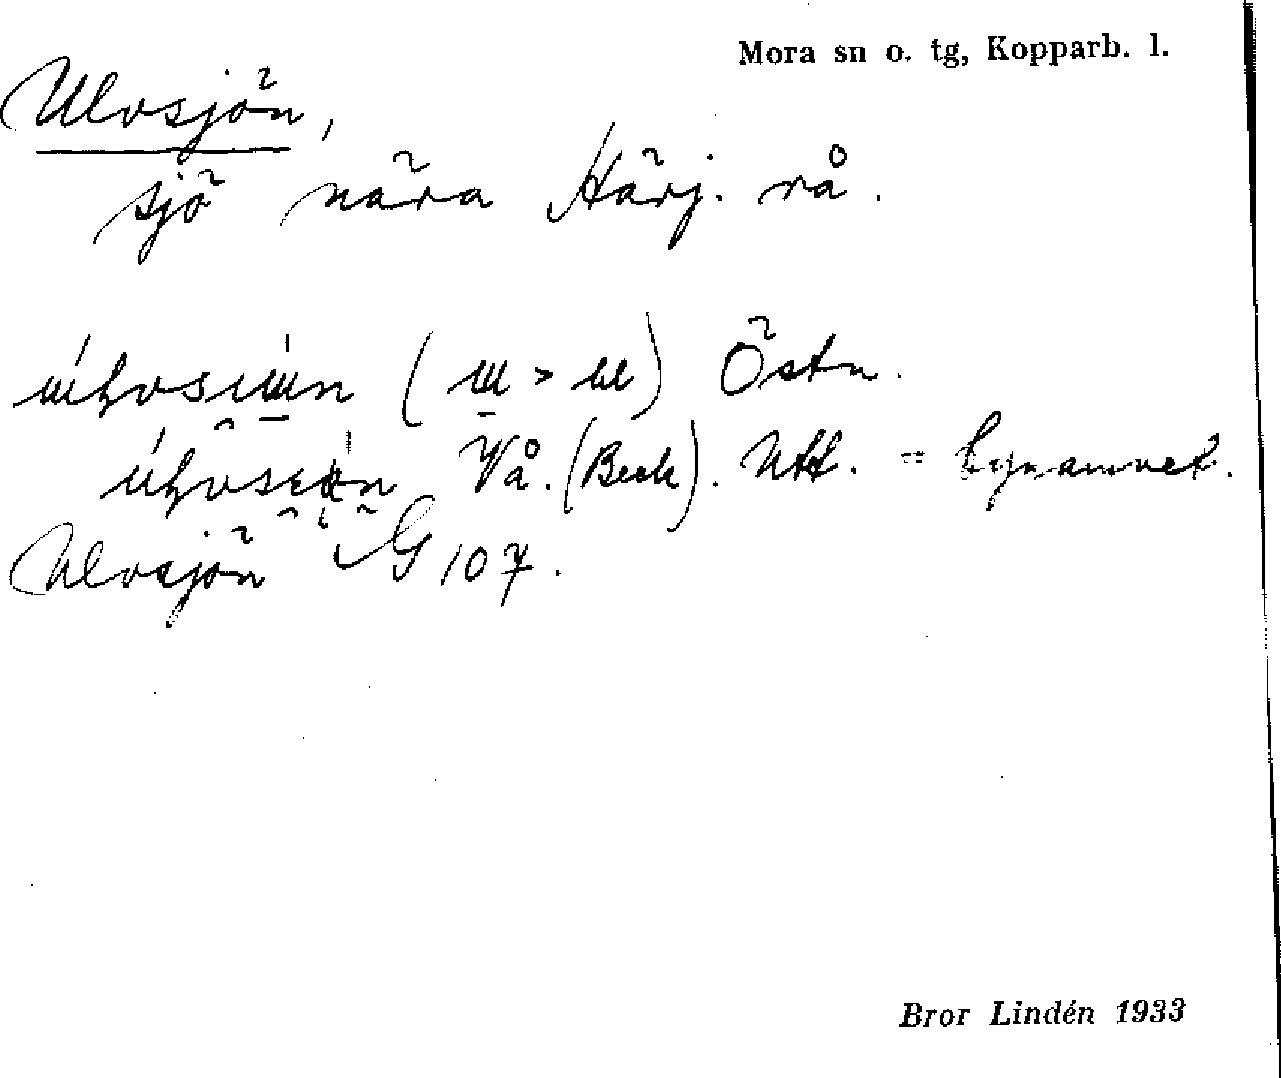 Mora sn o. tg, Kopparb. l.
Ulvsjön,
sjö nära Härj. rå.
Östn.
Vå. (Beck). Utt. = bynamnet.
Ulvsjön G 107.
Bror Lindén 1933